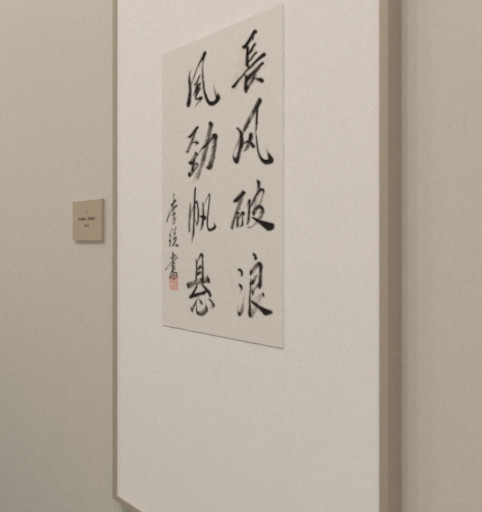 長风破浪
風劲帆悬
李 書